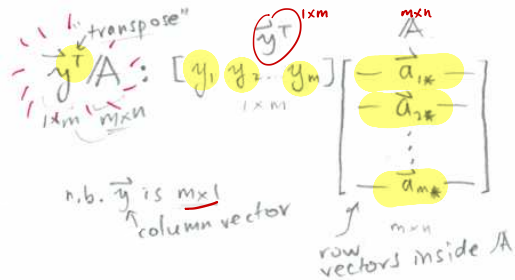 "transpose"
y⃗ᵀ 1×m
𝔸 m×n
y⃗ᵀ𝔸 : [y₁ y₂ ... yₘ] [— a⃗₁* —
1×m m×n
1×m
— a⃗₂* —
⋮
— a⃗ₘ* —]
m×n
n.b. y⃗ is m×1
column vector
row
vectors inside 𝔸